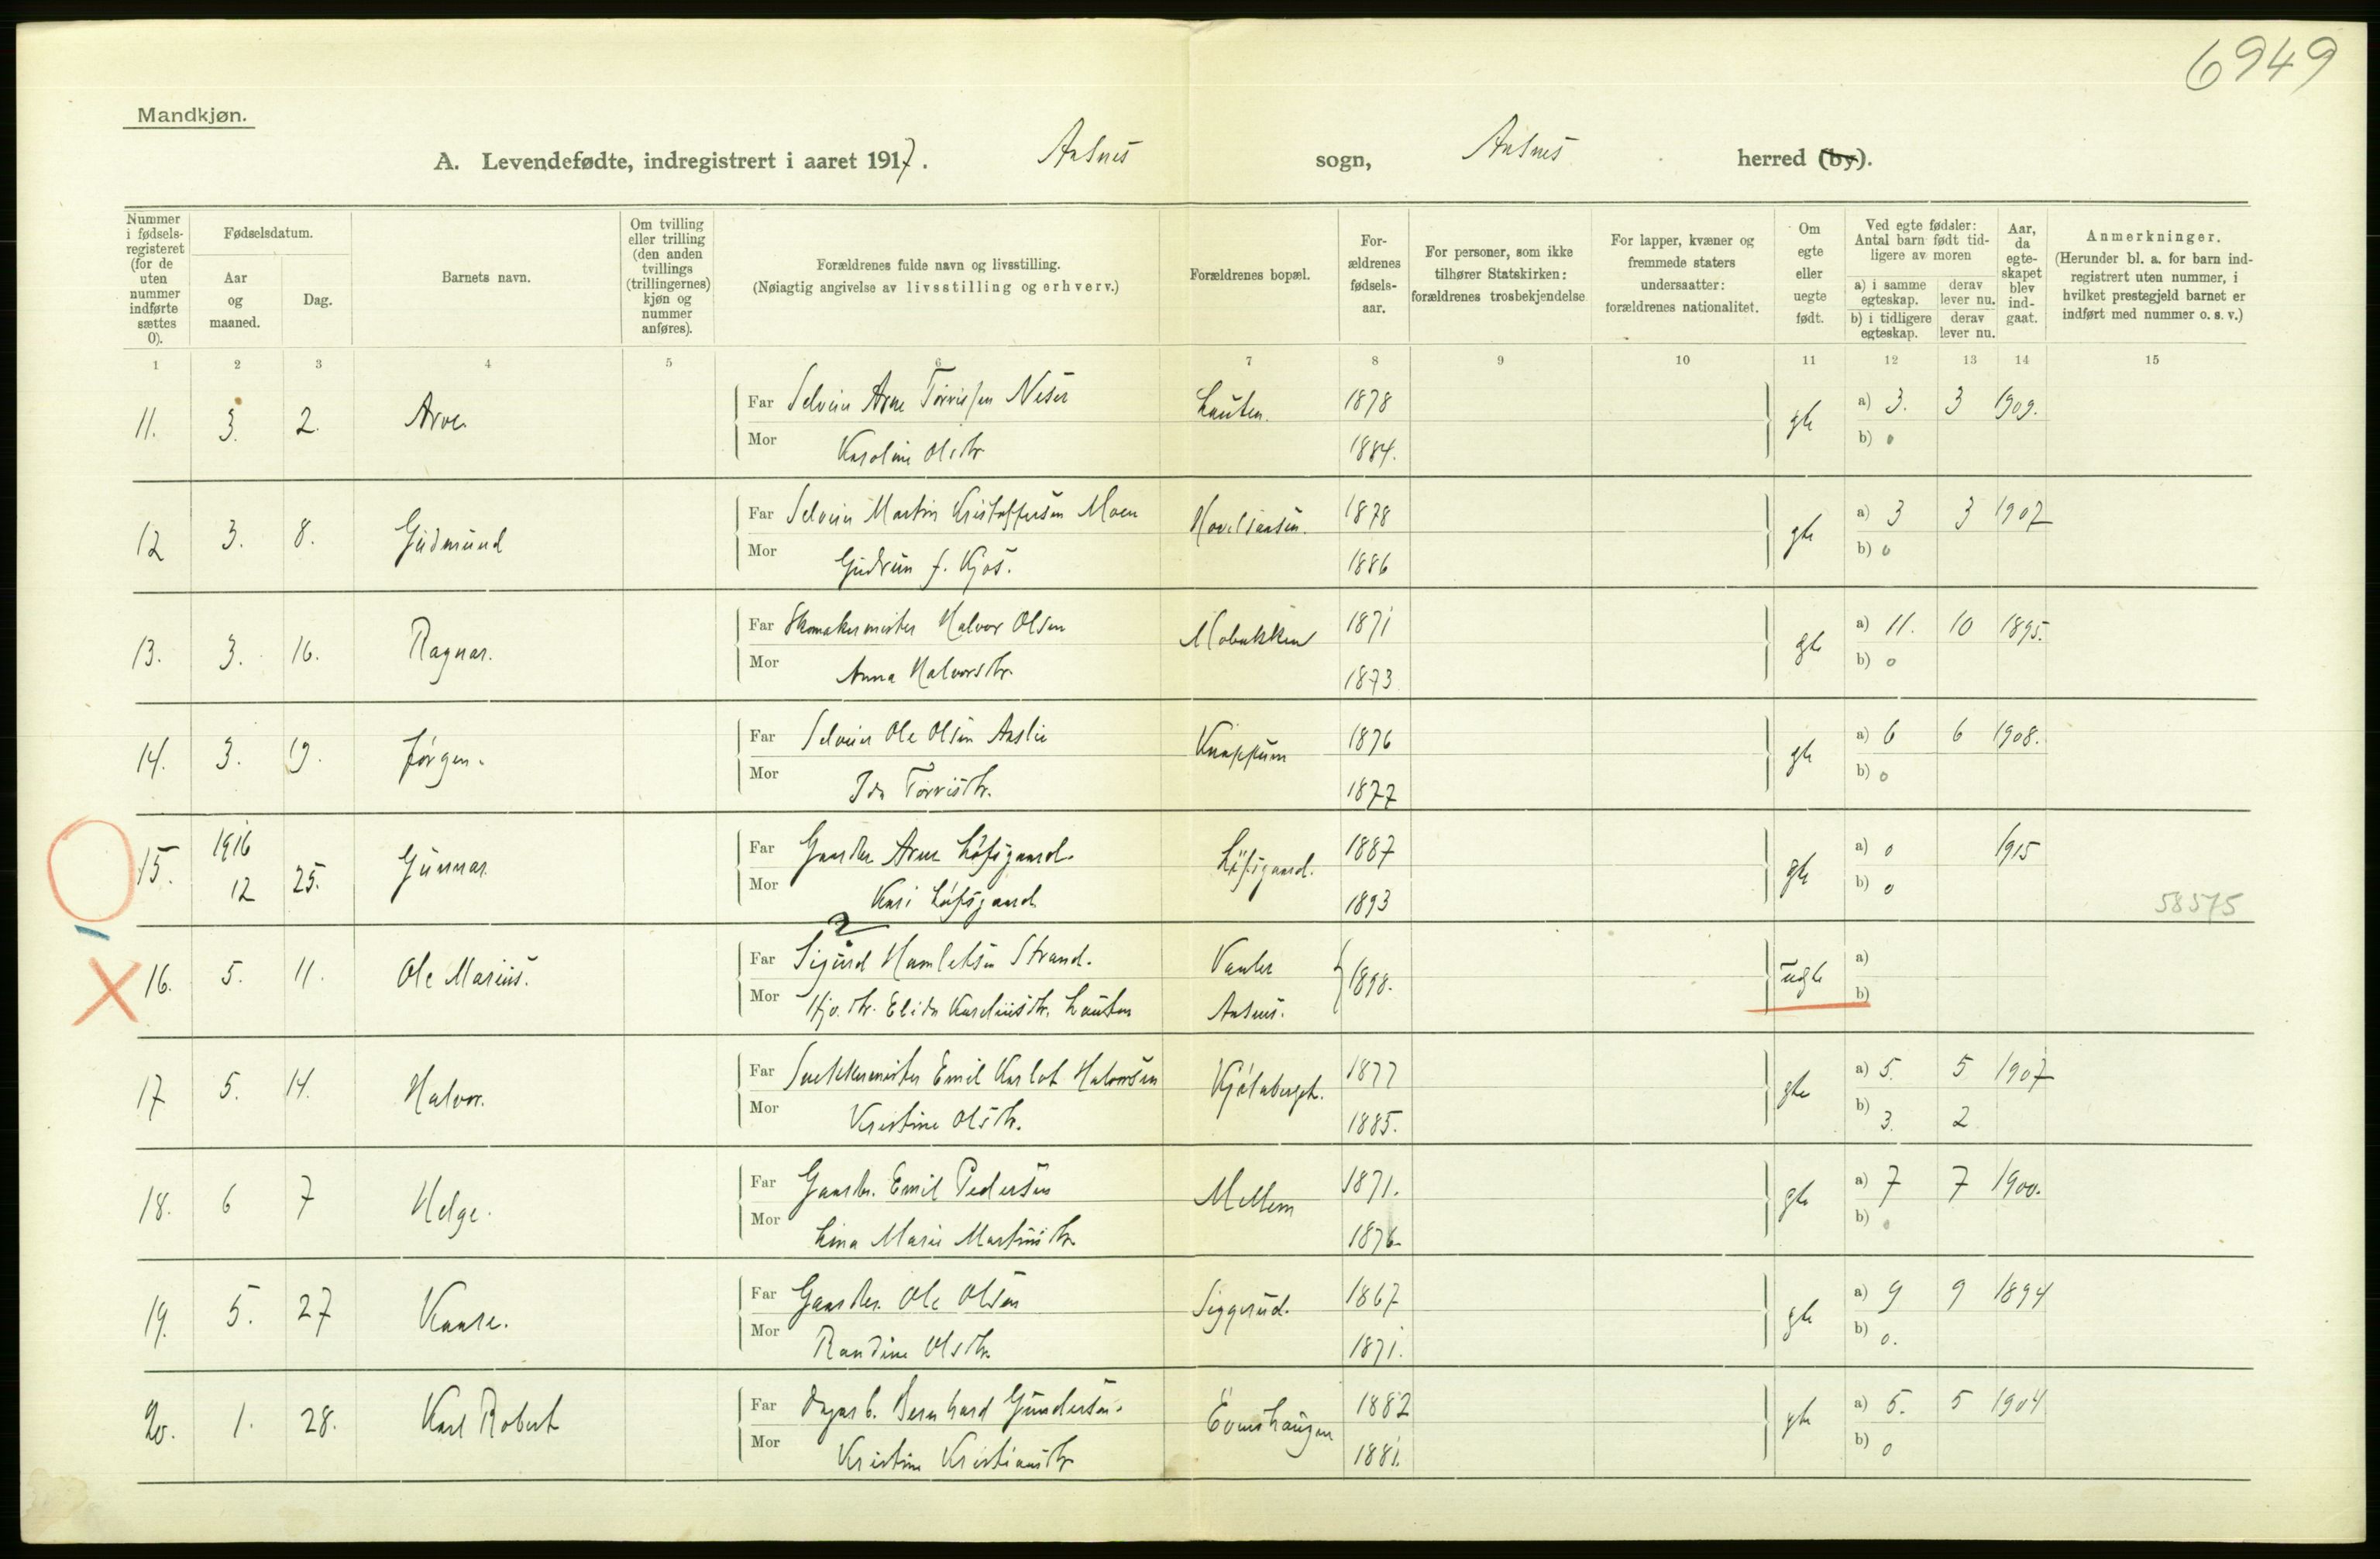 6949
Mandkjøn.
A. Levendefødte, indregistrert i aaret 1917. Aasnes sogn, Aasnes herred (by).
Nummer i fødselsregisteret (for de uten nummer indførte sættes 0).
Fødselsdatum.
Aar og maaned.
Dag.
Barnets navn.
Om tvilling eller trilling (den anden tvillings (trillingernes) kjøn og nummer anføres).
Forældrenes fulde navn og livsstilling.
(Nøiagtig angivelse av livsstilling og erhverv.)
Forældrenes bopæl.
For-ældrenes fødsels-aar.
For personer, som ikke tilhører Statskirken: forældrenes trosbekjendelse
For lapper, kvæner og fremmede staters undersaatter: forældrenes nationalitet.
Om egte eller uegte født.
Ved egte fødaler: Antal barn født tid-ligere av moren
a) i samme egteskap. derav lever nu.
b) i tidligere egteskap. derav lever nu.
Aar, da egte-skapet blev ind-gaat.
Anmerkninger.
(Herunder bl. a. for barn ind-registrert uten nummer, i hvilket prestegjeld barnet er indført med nummer o. s. v.)
1 2 3 4 5 6 7 8 9 10 11 12 13 14 15
11. 3. 2. Arve. Far Selveier Arne Torvissen Neser Lauten. 1878 gte a) 3. 3 1909.
Mor Karoline Olsdtr 1884. b) 0
12 3. 8. Gudmund Far Selveier Martin Kristoffersen Moen 1878 gte a) 3 3 1907
Mor Gudrun f. Kjos. 1886 b) 0
13. 3. 16. Ragnar. Far Skomakermester Halvor Olsen Mobakken 1871 gte a) 11. 10 1895.
Mor Anna Halvorsdtr. 1873 b) 0
14. 3. 19. Jørgen. Far Selveier Ole Olsen Aaslie Knappum 1876 gte a) 6 6 1908.
Mor Ida Torvisdtr. 1877 b) 0
15. 1916 12 25. Gunnar. Far Gaardbr. Arne Löfsgaard. Löfsgaard. 1887 gte a) 0 1915
Mor Kari Löfsgaard 1893 b) 0
58575
2
16. 5. 11. Ole Marius. Far Sigurd Hamletsen Strand. Vaaler 1898. uegte a)
Mor Elida Kareliusdtr. Lauten Aasnes. b)
17 5. 14. Halvor. Far Snekkermester Emil Karlot Halvorsen Kjölaberget. 1877 gte a) 5. 5 1907
Mor Kristine Olsdtr. 1885. b) 3. 2
18. 6 7 Helge. Far Gaardbr. Emil Pedersen Mellem 1871. gte a) 7 7 1900.
Mor Lina Marie Martinisdtr. 1876 b) 0
19. 5. 27 Kaare. Far Gaardbr. Ole Olsen Siggerud. 1867 gte a) 9 9 1894
Mor Randine Olsdtr. 1871. b) 0.
20. 1. 28. Karl Robert Far Dagarb. Bernhard Gundersen. Evenshaugen 1882 gte a) 5. 5 1904
Mor Kristine Kristiansdtr 1881. b) 0